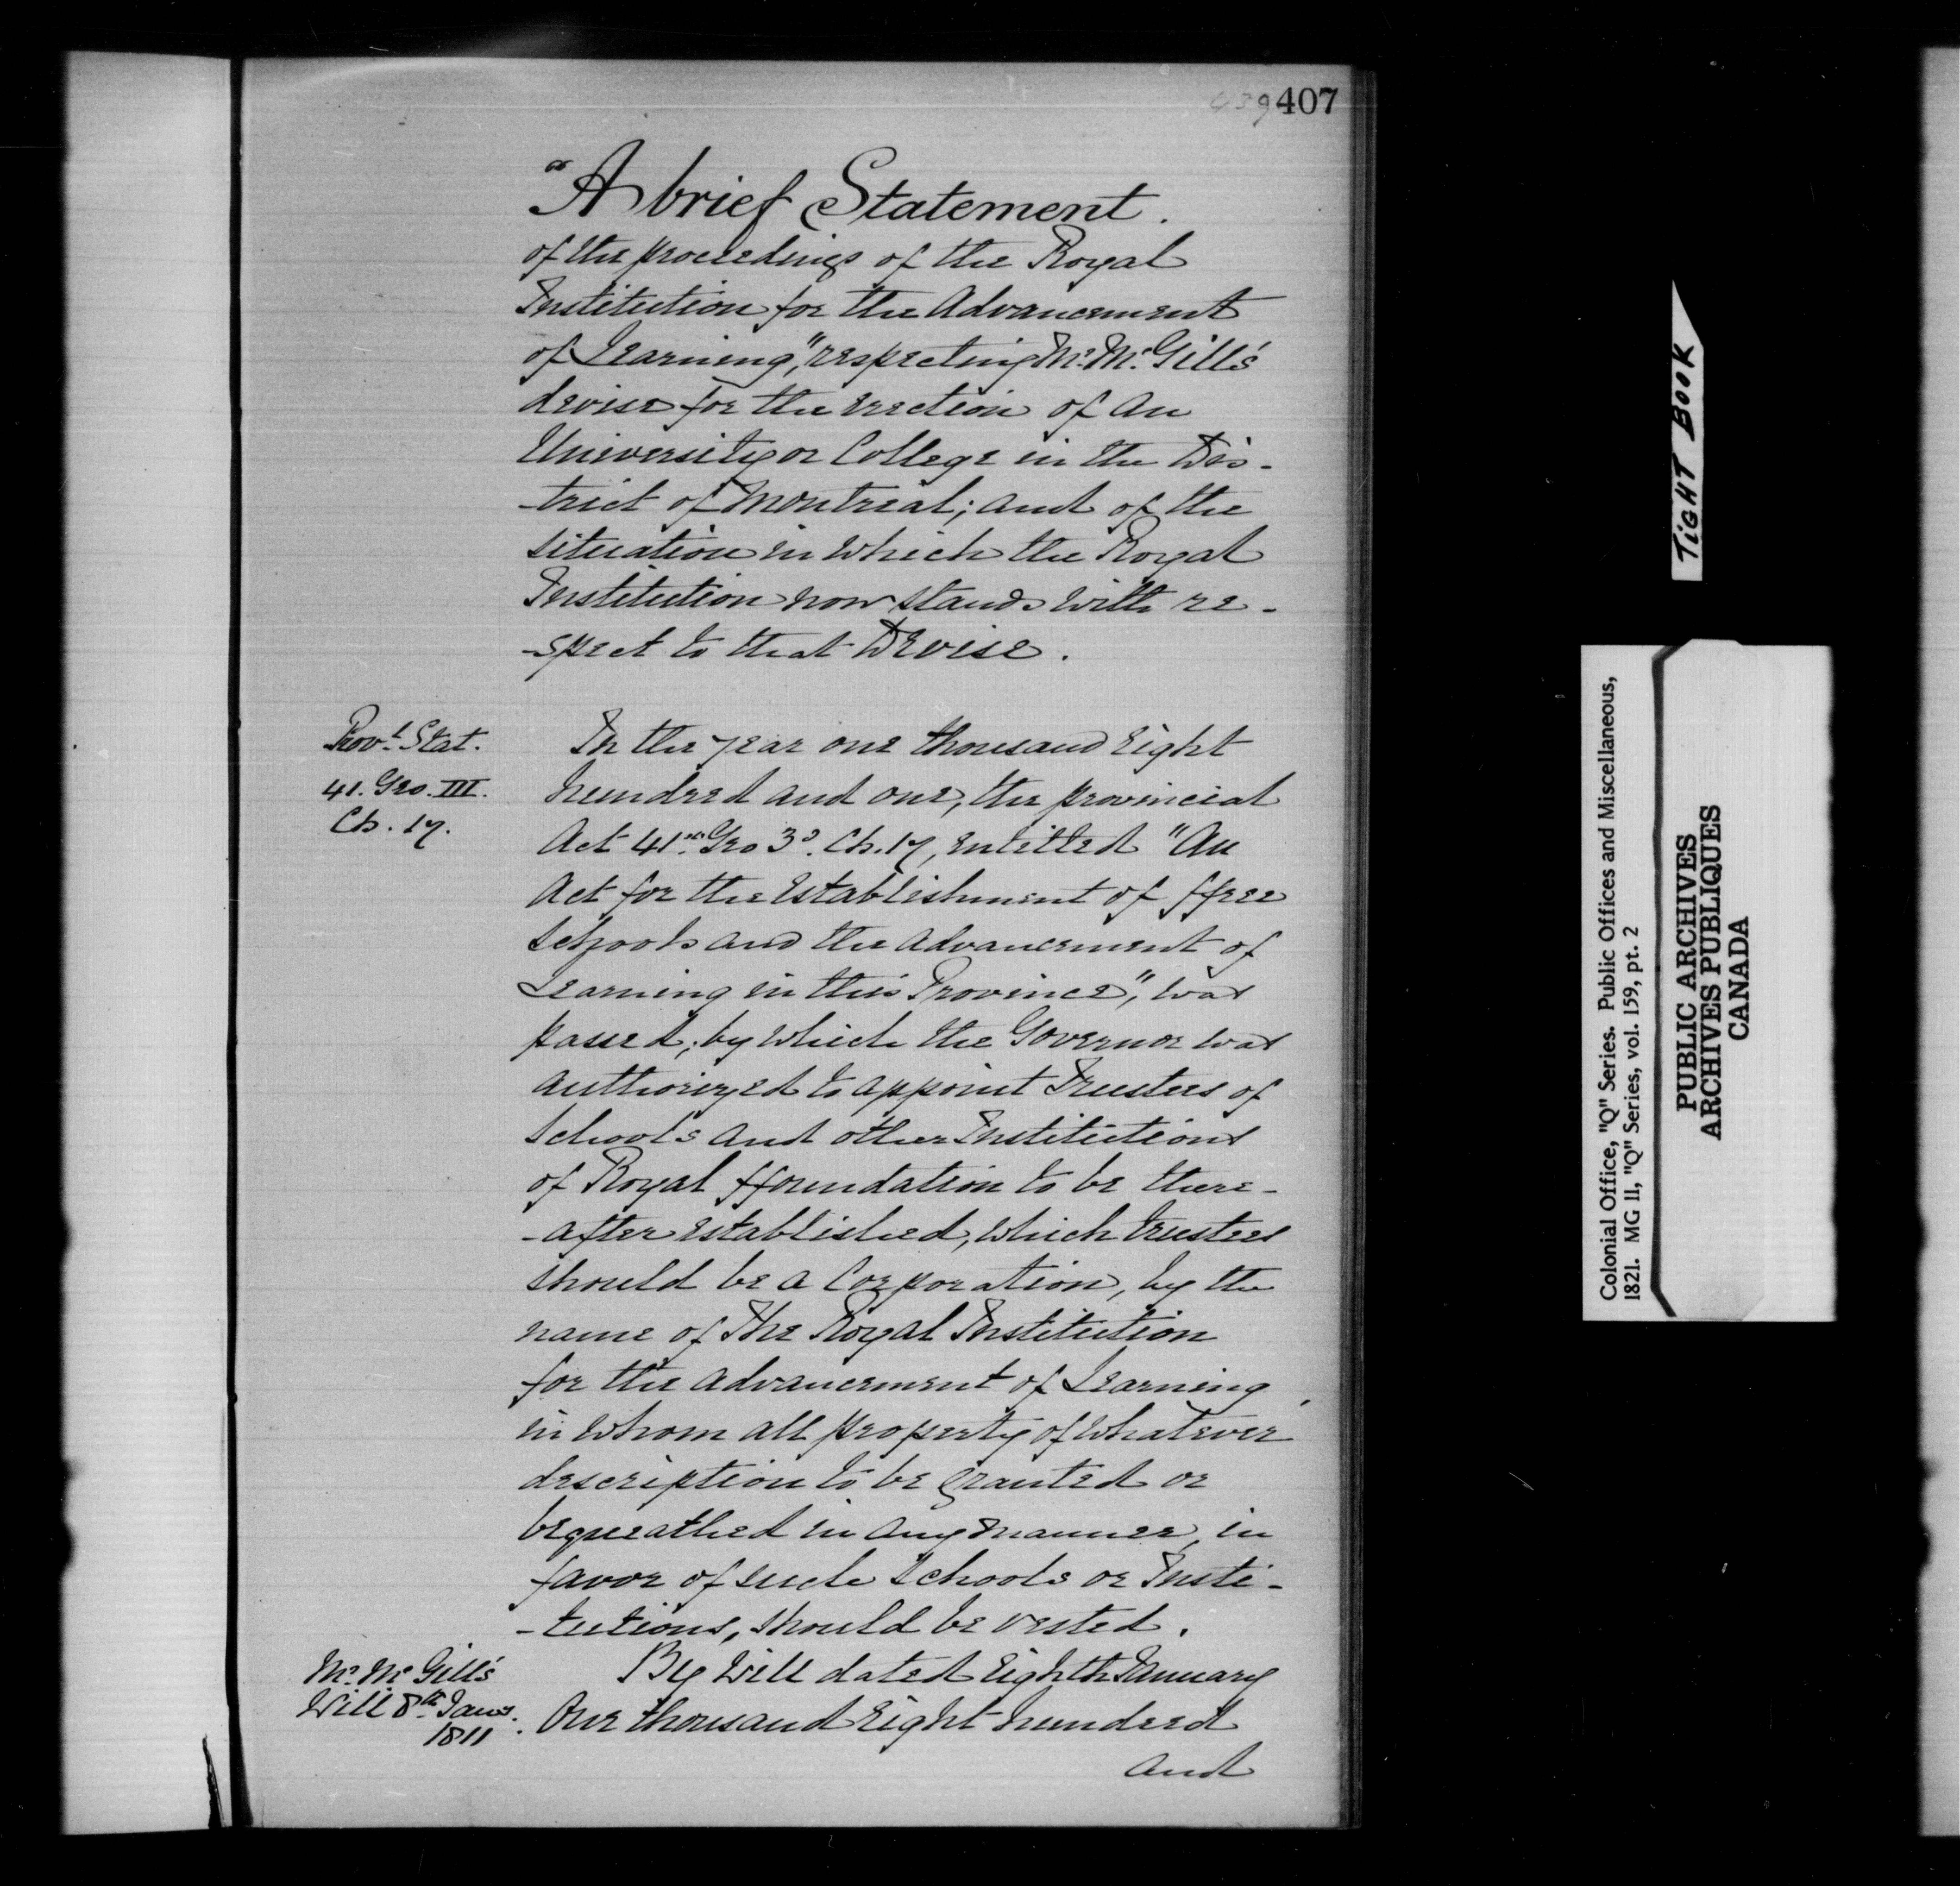 439 407
"A brief Statement.
of the proceedings of the Royal
Institution for the Advancement
of Learning," respecting Mr. Mc.Gill's
devise for the erection of an
University or College in the Dis-
-trict of Montreal; and of the
situation in which the Royal
Institution now stands with re-
-spect to that Devise.
Provl. Stat.
41. Geo. III.
Ch. 17.
In the year one thousand eight
hundred and one, the provincial
Act 41st. Geo 3d. Ch. 17, entitled "An
Act for the establishment of ffree
Schools and the advancement of
Learning in this Province", was
passed; by which the Governor was
authorized to appoint Trustees of
Schools and other Institutions
of Royal ffoundation to be there-
-after established, which trustees
should be a Corporation, by the
name of The Royal Institution
for the advancement of Learning,
in whom all property of whatever
description to be granted or
bequeathed in any manner, in
favor of such Schools or Insti-
-tutions, should be vested.
Mr. Mc Gill's
Will 8th Jany.
1811.
By Will dated Eighth January
One thousand Eight hundred
and
TiGHT BOOK
Colonial Office, "Q" Series. Public Offices and Miscellaneous,
1821. MG 11, "Q" Series, vol. 159, pt. 2
PUBLIC ARCHIVES
ARCHIVES PUBLIQUES
CANADA